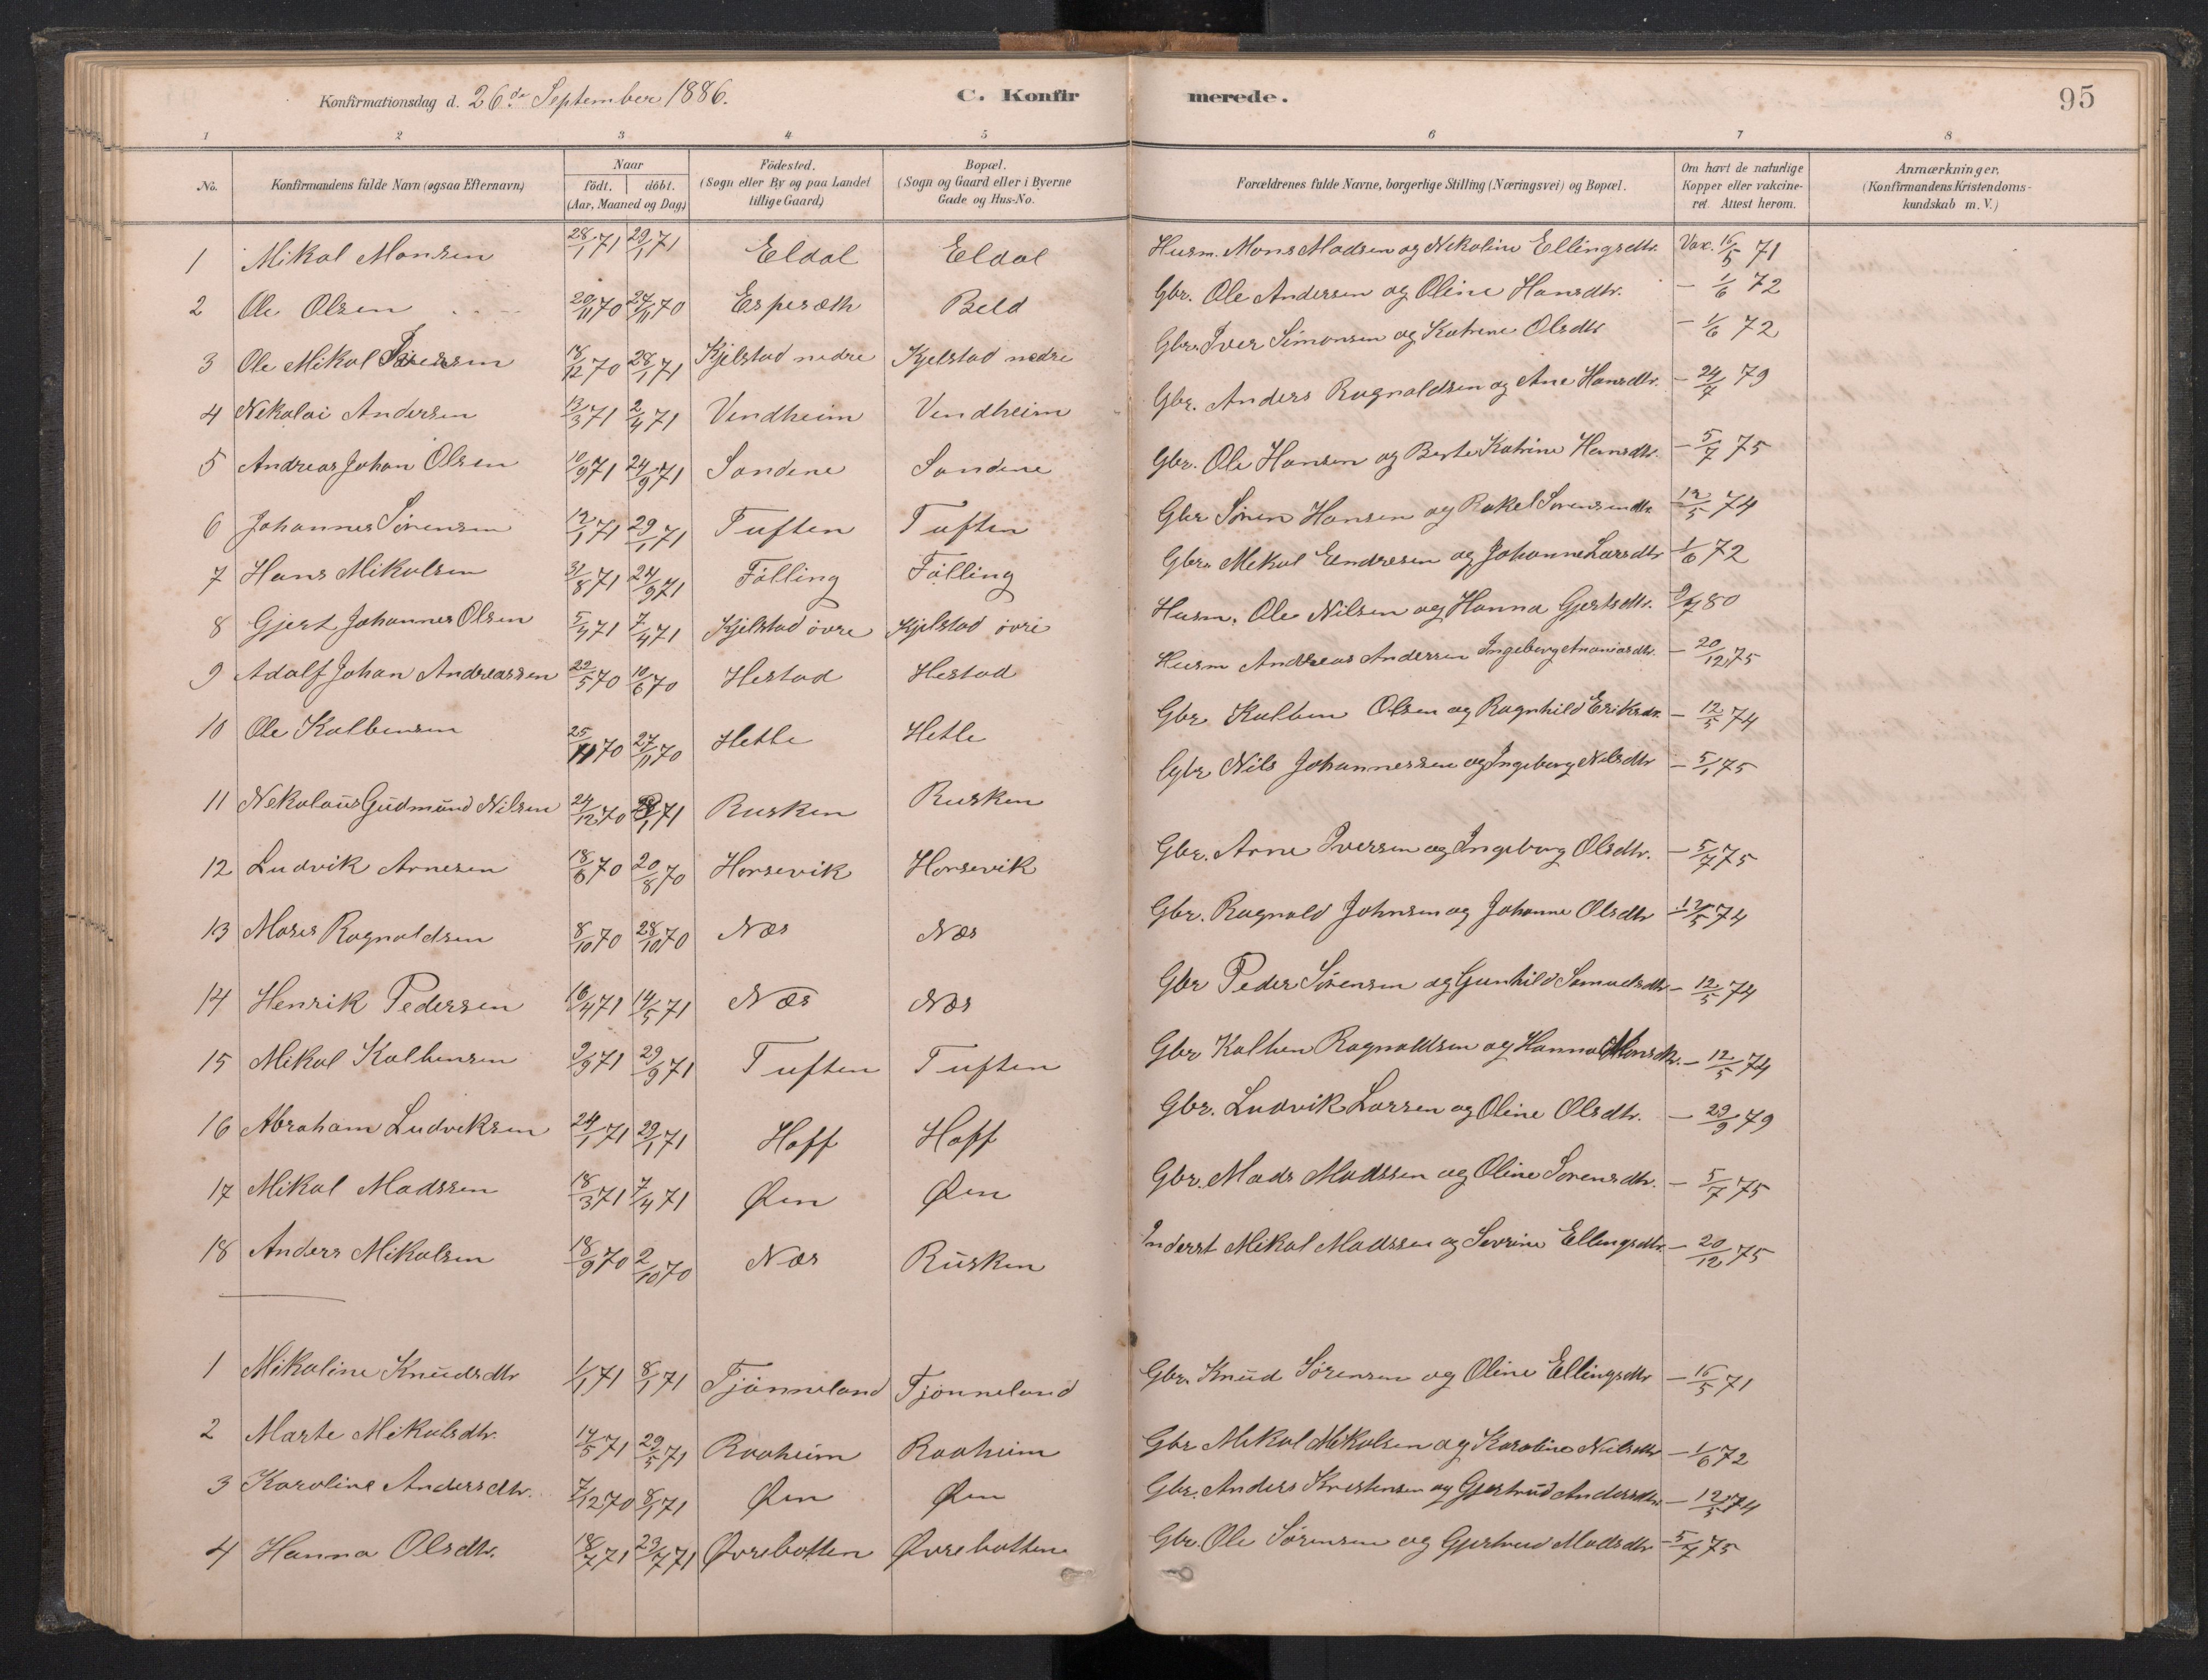 Konfirmationsdag d. 26de September 1886. C. Konfirmerede. 95
1 2 3 4 5 6 7 8
No. Konfirmandens fulde Navn (ogsaa Efternavn) Naar født. døbt. (Aar, Maaned og Dag) Födested. (Sogn eller By og paa Landet tillige Gaard) Bopæl. (Sogn og Gaard eller i Byerne Gade og Hus-No. Forældrenes fulde Navne, borgerlige Stilling (Næringsvei) og Bopæl. Om havt de naturlige Kopper eller vakcineret. Attest herom. Anmærkninger. (Konfirmandens Kristendomskundskab m. V.)
1 Mikal Monsen 28/1 71 29/1 71 Eldal Eldal Husm. Mons Madsen og Nikoline Ellingsdtr. Vax. 16/5 71
2 Ole Olsen 20/11 70 27/11 70 Espesæth Beld Gbr. Ole Andersen og Oline Hansdtr. - 1/6 72
3 Ole Mikal Iversen 18/12 70 28/1 71 Kjelstad nedre Kjelstad nedre Gbr. Iver Simonsen og Katrine Olsdtr - 1/6 72
4 Nekolai Andersen 13/3 71 2/4 71 Vindheim Vindheim Gbr. Anders Ragnaldsen og Ane Hansdtr. - 24/7 79
5 Andreas Johan Olsen 10/9 71 24/9 71 Sandene Sandene Gbr. Ole Hansen og Berte Katrine Hansdtr. - 5/7 75
6 Johannes Sørensen 12/1 71 29/1 71 Tuften Tuften Gbr Søren Hansen og Rakel Sorensendtr - 12/5 74
7 Hans Mikalsen 31/8 71 24/9 71 Fölling Fölling Gbr. Mekal Endresen og Johanne Larsdtr - 1/6 72
8 Gjert Johannes Olsen 5/4 71 7/4 71 Kjelstad övre Kjelstad övre Husm. Ole Nilsen og Hanna Gjertsdtr. 9/7 80
9 Adolf Johan Andreassen 22/5 70 10/6 70 Hestad Hestad Husm Andreas Andersen Ingeborg Ananiasdtr. - 20/12 75
10 Ole Kolbensen 25/11 70 27/11 70 Hetle Hetle Gbr Kolben Olsen og Ragnhild Eriksdtr. - 12/5 74
11 Nekolaus Gudmund Nilsen 24/12 70 29/1 71 Rusken Rusken Gbr Nils Johannessen og Ingeborg Nilsdtr - 5/1 75
12 Ludvik Arnesen 18/6 70 20/8 70 Horsevik Horsevik Gbr. Arne Iversen og Ingeborg Olsdtr. - 5/7 75
13 Moses Ragnaldsen 8/10 70 28/10 70 Næs Næs Gbr. Ragnald Johnsen og Johanne Olsdtr - 12/5 74
14 Henrik Pedersen 16/4 71 14/5 71 Næs Næs Gbr Peder Sørensen og Gunhild Samuelsdtr - 12/5 74
15 Mikal Kolbensen 9/9 71 29/9 71 Tuften Tuften Gbr Kolben Ragnaldsen og Hanna Monsdtr. - 12/5 74
16 Abraham Ludveksen 24/1 71 29/1 71 Hoff Hoff Gbr. Ludvik Larsen og Oline Olsdtr. - 29/9 79
17 Mikal Madssen 18/3 71 7/4 71 Øen Øen Gbr. Mads Madssen og Oline Sorensdtr. - 5/7 75
18 Anders Mikalsen 18/9 70 2/10 70 Næs Rusken Inderst Mikal Madssen og Sevrine Ellingsdtr. - 20/12 75
1 Mikaline Knudsdtr 1/1 71 8/1 71 Tjönneland Tjönneland Gbr. Knud Sørensen og Oline Ellingsdtr - 16/5 71
2 Marte Mekalsdtr. 14/5 71 29/5 71 Raaheim Raaheim Gbr Mekal Mekalsen og Karoline Nilsdtr - 1/6 72
3 Karoline Andersdtr. 7/12 70 8/1 71 Øen Øen Gbr. Anders Kristensen og Gjertrud Andersdtr - 12/5 74
4 Hanna Olsdtr. 18/7 71 23/7 71 Øvrebotten Øvrebotten Gbr. Ole Sørensen og Gjertrud Madsdtr - 5/7 75